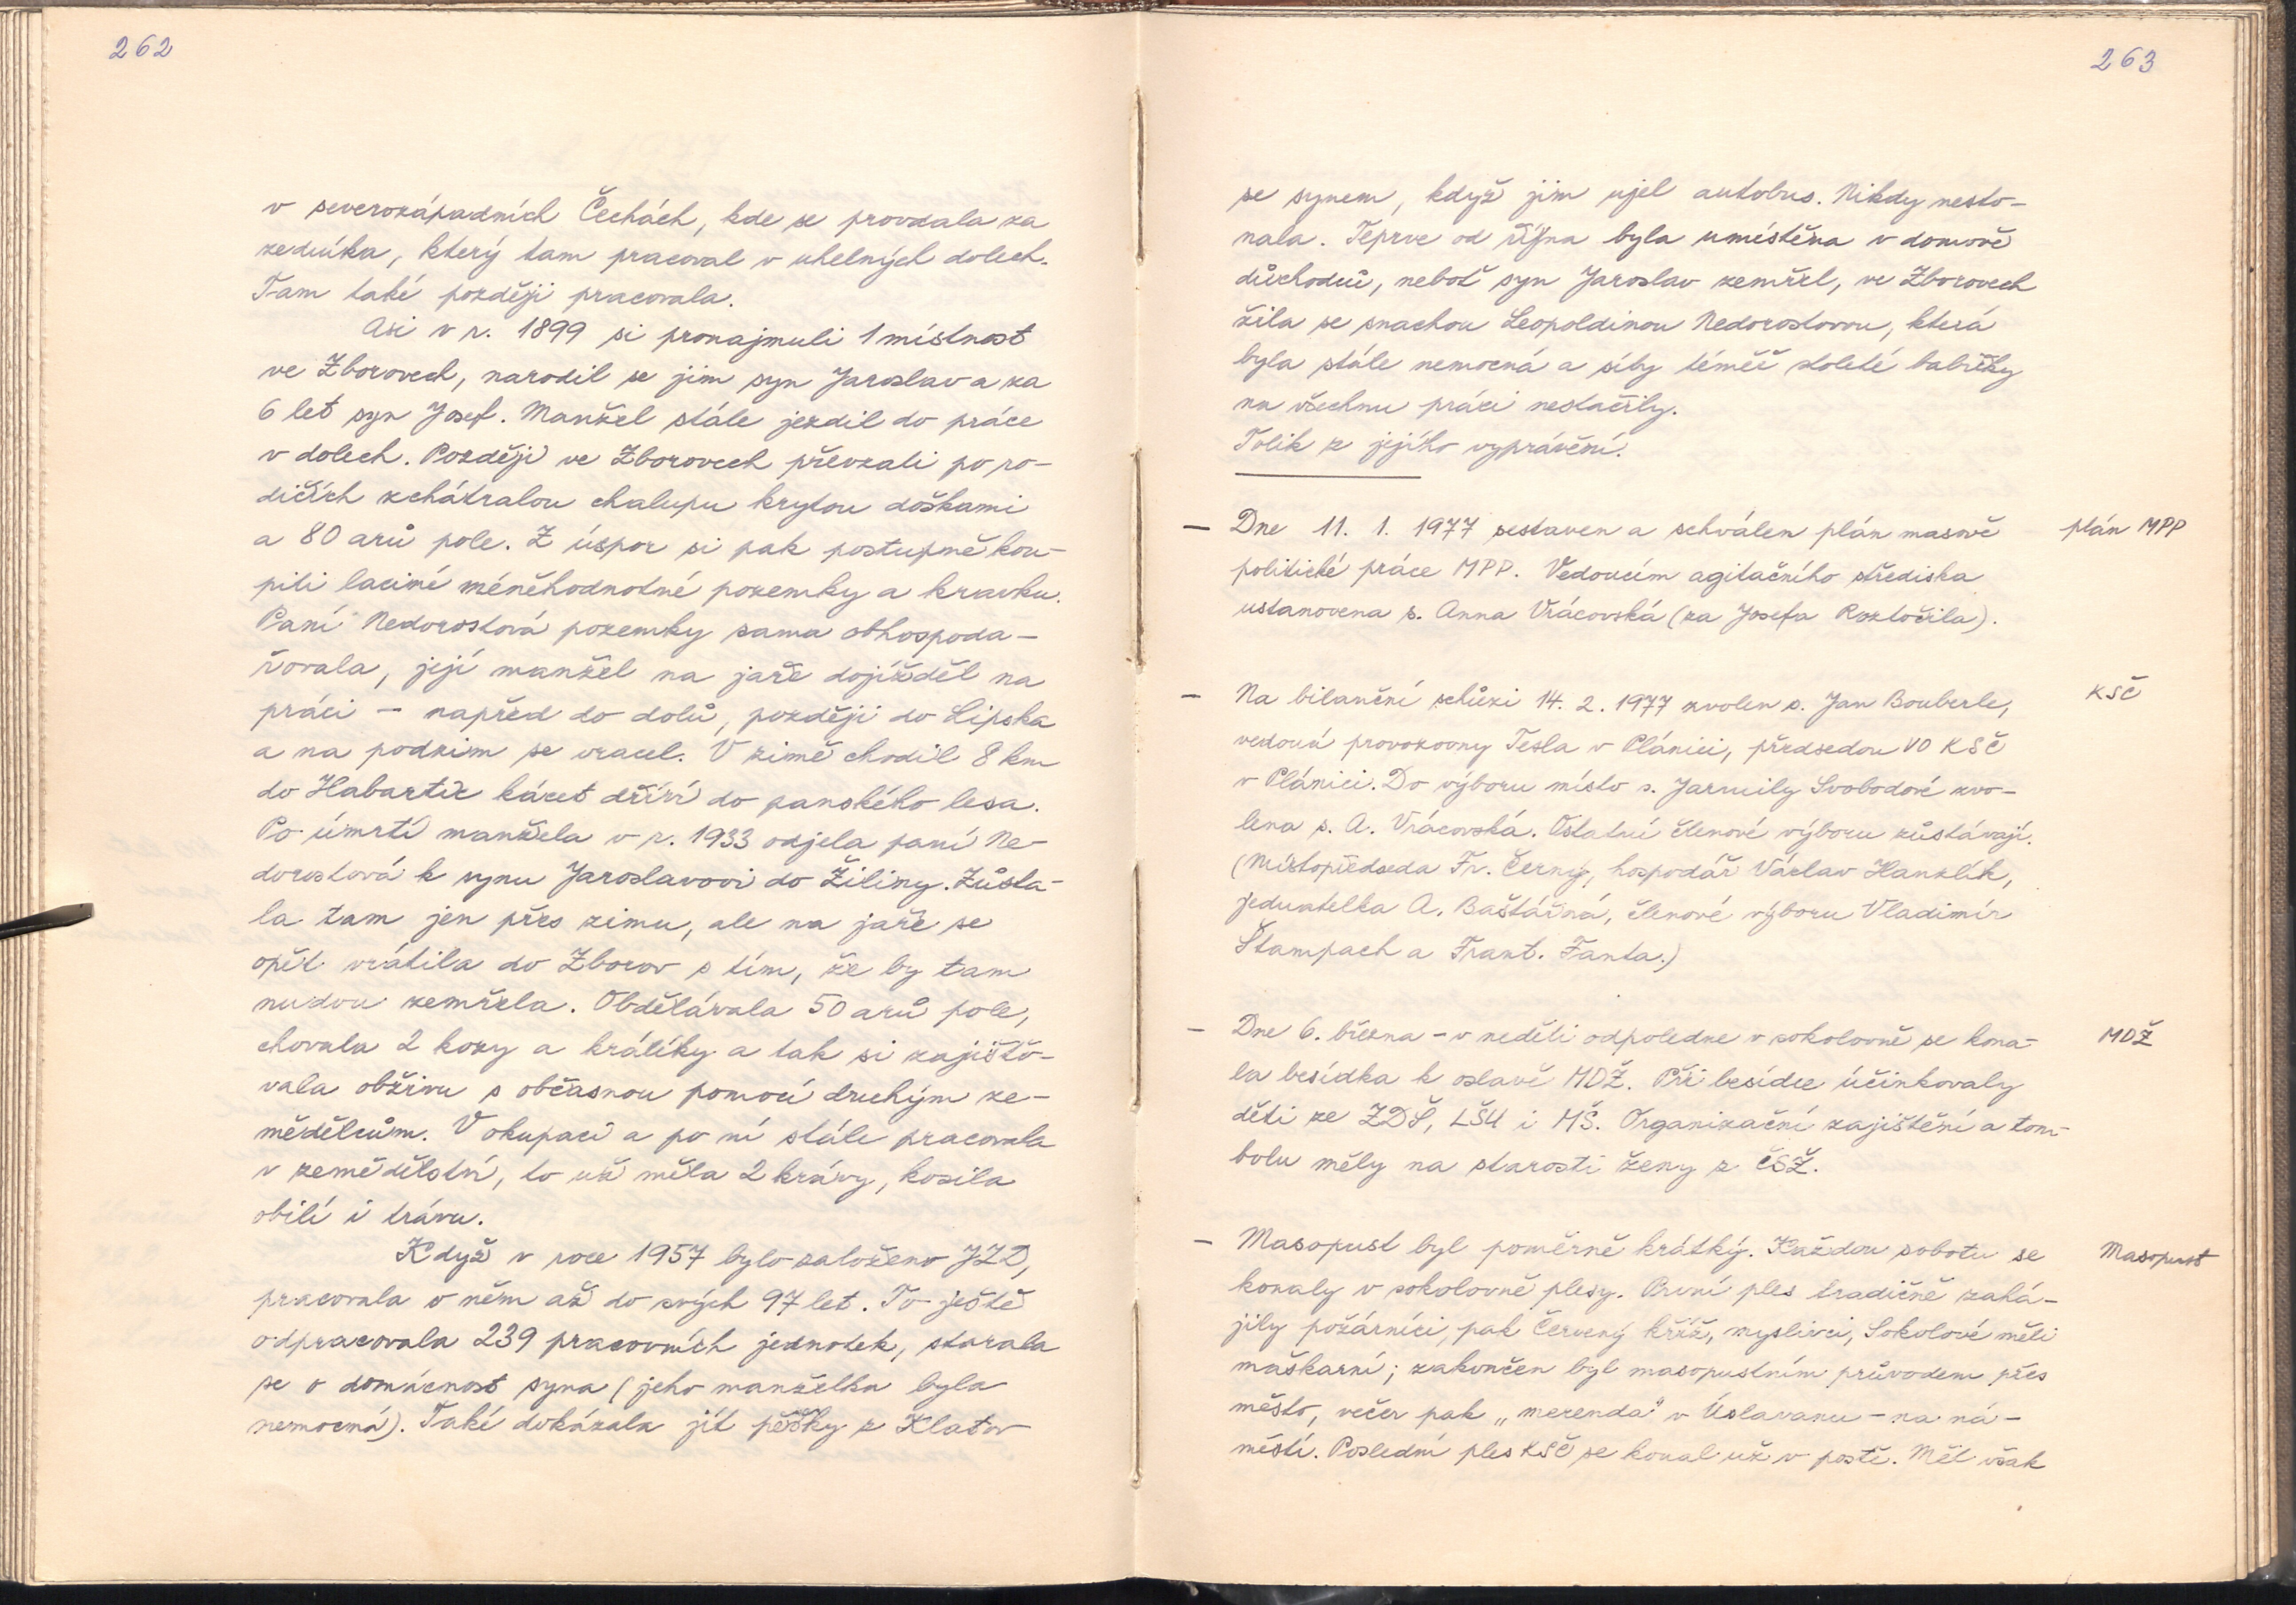 262
v severozápadních Čechách, kde se provdala za
zedníka, který tam pracoval v uhelných dolech.
Tam také později pracovala.
Asi v r. 1899 si pronajmuli 1 místnost
ve Zborovech, narodil se jim syn Jaroslav a za
6 let syn Josef. Manžel stále jezdil do práce
v dolech. Později ve Zborovech převzali po ro-
dičích zchátralou chalupu krytou doškami
a 80 arů pole. Z úspor si pak postupně kou-
pili laciné méněhodnotné pozemky a kravku.
Paní Nedorostová pozemky sama obhospoda-
řovala, její manžel na jaře dojížděl na
práci - napřed do dolů, později do Lipska
a na podzim se vracel. V zimě chodil 8 km
do Habartic kácet dříví do panského lesa.
Po úmrtí manžela v r. 1933 odjela paní Ne-
dorostová k synu Jaroslavovi do Žiliny. Zůsta-
la tam jen přes zimu, ale na jaře se
opět vrátila do Zborov s tím, že by tam
nudou zemřela. Obdělávala 50 arů pole,
chovala 2 kozy a králíky a tak si zajišťo-
vala obživu s občasnou pomocí druhým ze-
mědělcům. V okupaci a po ní stále pracovala
v zemědělství, to už měla 2 krávy, kosila
obilí i trávu.
Když v roce 1957 bylo založeno JZD,
pracovala v něm až do svých 97 let. To ještě
odpracovala 239 pracovních jednotek, starala
se o domácnost syna (jeho manželka byla
nemocná). Také dokázala jít pěšky z Klatov
263
se synem, když jim ujel autobus. Nikdy nesto-
nala. Teprve od října byla umístěna v domově
důchodců, neboť syn Jaroslav zemřel, ve Zborovech
žila se snachou Leopoldinou Nedorostovou, která
byla stále nemocná a síly téměř stoleté babičky
na všechnu práci nestačily.
Tolik z jejího vyprávění.
- Dne 11. 1. 1977 sestaven a schválen plán masově
plán MPP
politické práce MPP. Vedoucím agitačního střediska
ustanovena s. Anna Vrácovská (za Josefa Roztočila).
- Na bilanční schůzi 14. 2. 1977 zvolen s. Jan Bouberle,
KSČ
vedoucí provozovny Tesla v Plánici, předsedou VO KSČ
v Plánici. Do výboru místo s. Jarmily Svobodové zvo-
lena s. A. Vrácovská. Ostatní členové výboru zůstávají.
(Místopředseda Fr. Černý, hospodář Václav Hanzlík,
jednatelka A. Baštářná, členové výboru Vladimír
Štampach a Frant. Fanta.)
- Dne 6. března - v neděli odpoledne v sokolovně se kona-
MDŽ
la besídka k oslavě MDŽ. Při besídce účinkovaly
děti ze ZDŠ, LŠU i MŠ. Organizační zajištění a tom-
bolu měly na starosti ženy z ČSŽ.
- Masopust byl poměrně krátký. Každou sobotu se
Masopust
konaly v sokolovně plesy. První ples tradičně zahá-
jily požárníci, pak Červený kříž, myslivci, Sokolové měli
maškarní; zakončen byl masopustním průvodem přes
město, večer pak „merenda" v Úslavanu - na ná-
městí. Poslední ples KSČ se konal už v postě. Měl však